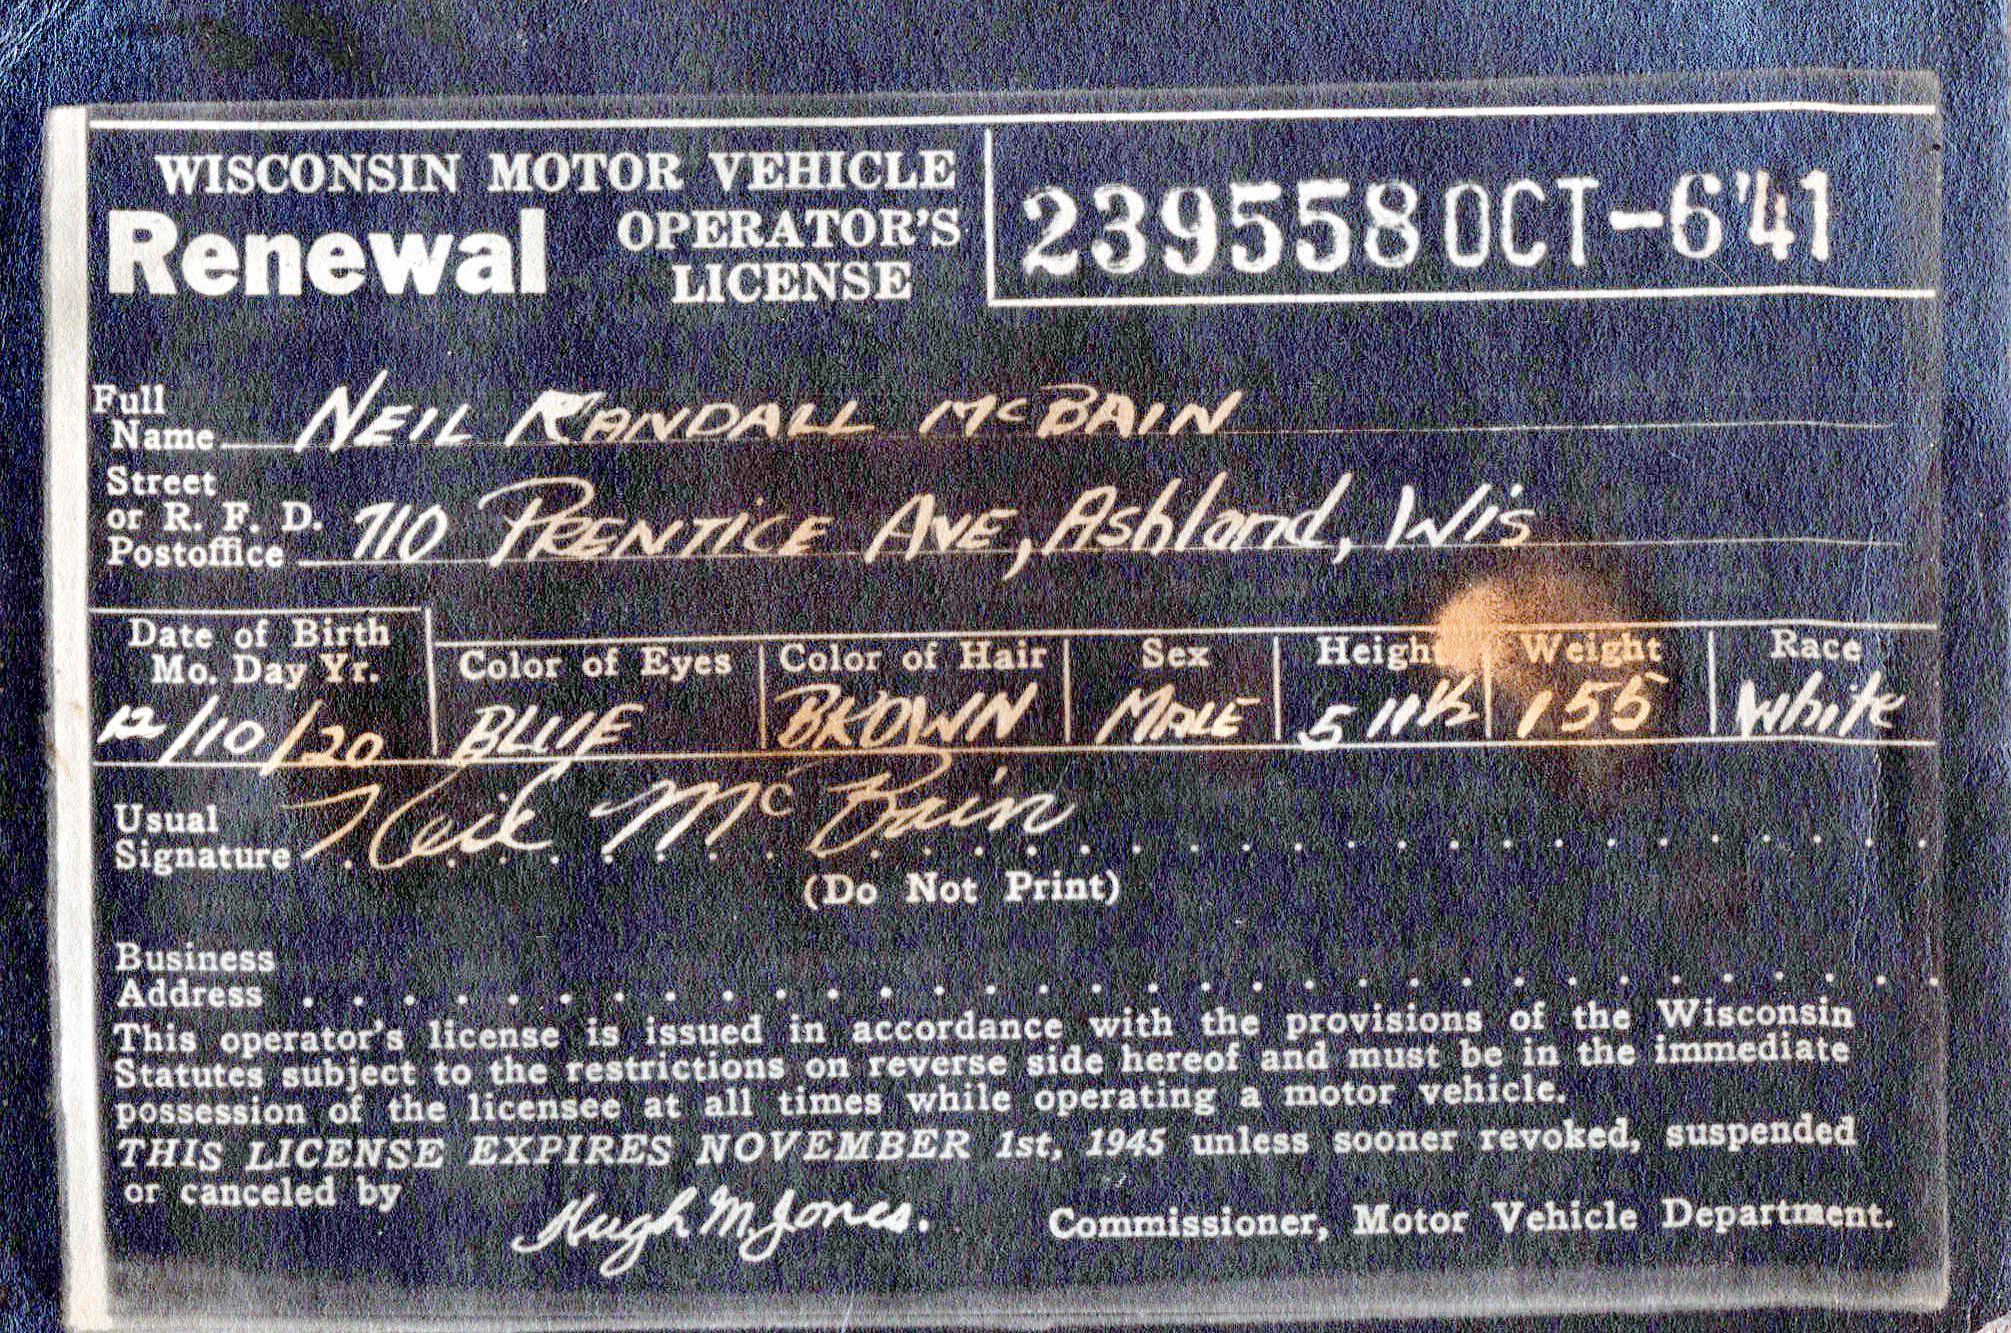 WISCONSIN MOTOR VEHICLE
Renewal OPERATOR'S LICENSE
239558 OCT-6'41
Full Name NEIL RANDALL McBAIN
Street or R. F. D. Postoffice 710 PRENTICE AVE, Ashland, Wis
Date of Birth Mo. Day Yr. 12/10/20
Color of Eyes BLUE
Color of Hair BROWN
Sex MALE
Height 5 11½
Weight 155
Race White
Usual Signature Neil McBain
(Do Not Print)
Business Address
This operator's license is issued in accordance with the provisions of the Wisconsin
Statutes subject to the restrictions on reverse side hereof and must be in the immediate
possession of the licensee at all times while operating a motor vehicle.
THIS LICENSE EXPIRES NOVEMBER 1st, 1945 unless sooner revoked, suspended
or canceled by
Hugh M Jones. Commissioner, Motor Vehicle Department.